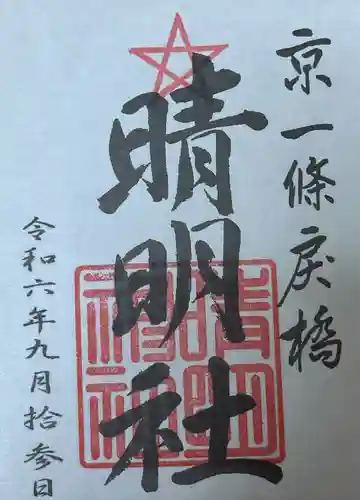 京一條戻橋
晴明社
令和六年九月拾参日